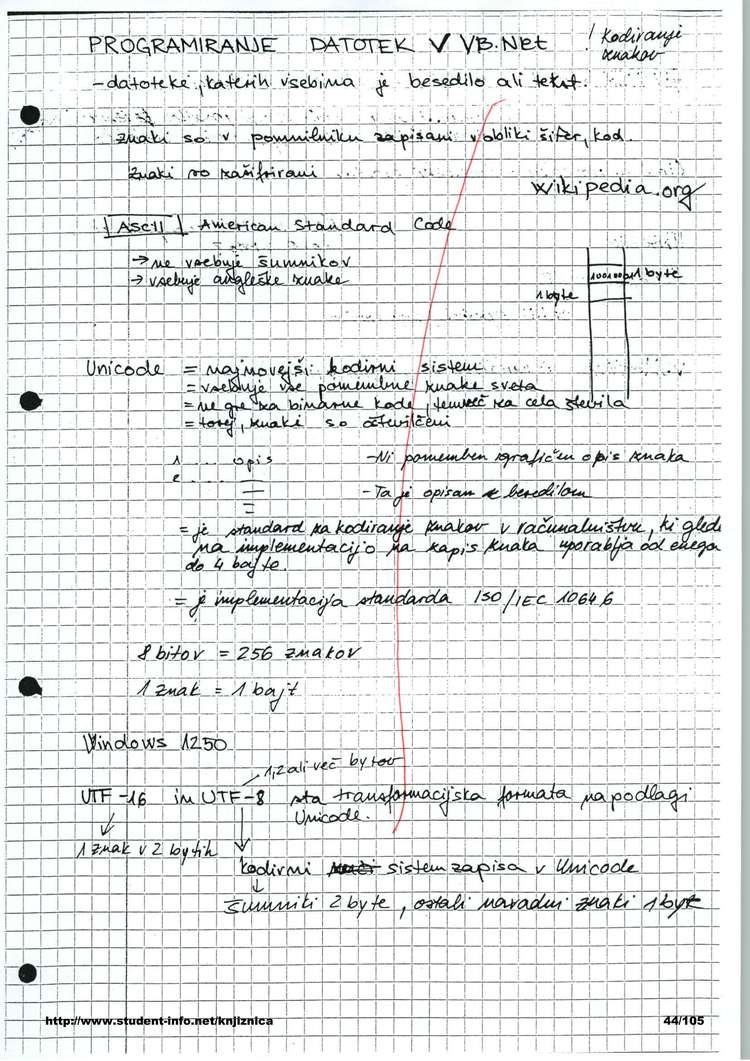 PROGRAMIRANJE DATOTEK V VB.Net
! Kodiranje
znakov
- datoteke, katerih vsebina je besedilo ali tekst.
znaki so v pomnilniku zapisani v obliki šifer, kod.
Znaki so zašifrirani
wikipedia.org
ASCII American Standard Code
→ ne vsebuje šumnikov
→ vsebuje angleške znake
1 byte
1 byte
Unicode = najnovejši kodirni sistem
= vsebuje vse pomembne znake sveta
= ne gre za binarne kode, temveč za cela števila
= torej, znaki so oštevilčeni
1 .... opis
2 ....
- Ni pomemben grafičen opis znaka
- Ta je opisan z besedilom
= je standard za kodiranje znakov v računalništvu, ki glede
na implementacijo na zapis znaka uporablja od enega
do 4 bajte.
= je implementacija standarda ISO/IEC 10646
8 bitov = 256 znakov
1 znak = 1 bajt
Windows 1250
1,2 ali več bytov
UTF-16 in UTF-8 sta transformacijska formata na podlagi
Unicode.
1 znak v 2 bytih
kodirni sistem zapisa v Unicode
šumniki 2 byte, ostali navadni znaki 1 byte
http://www.student-info.net/knjiznica
44/105